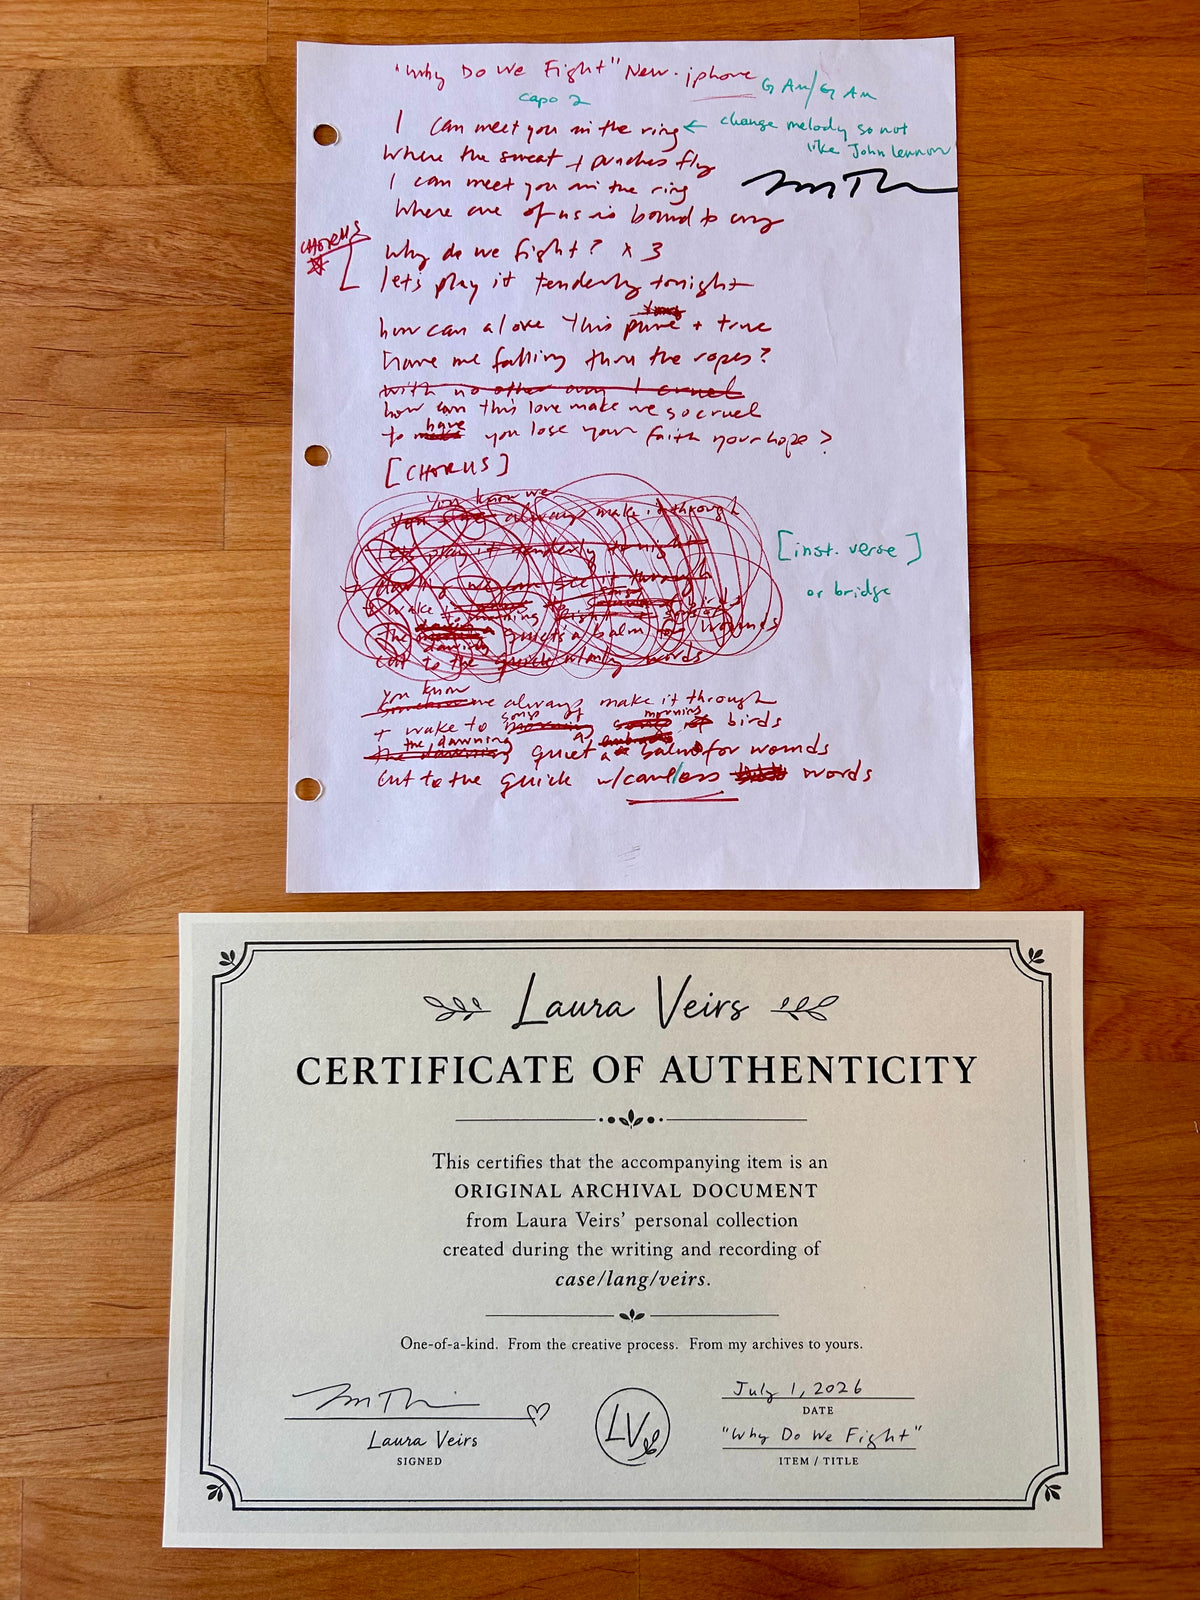 "Why Do We Fight" New. iphone
G Am/G Am
capo 2
I can meet you in the ring ← change melody so not
like John Lennon
Where the sweat + punches fly
I can meet you in the ring
Where one of us is bound to cry
CHORUS
Why do we fight? x 3
let's play it tenderly tonight
how can a love this pure + true
have me falling thru the ropes?
with no other way I cruel
how can this love make me so cruel
to have you lose your faith your hope?
[CHORUS]
you know we
always make it through
let's play it tenderly tonight
[inst. verse]
or bridge
we can see it through
+ wake to birds
the quiet's a balm for wounds
cut to the quick w/my words
you know
we always make it through
songs of morning
+ wake to birds
the dawning quiet a balm for wounds
cut to the quick w/careless words
Laura Veirs
CERTIFICATE OF AUTHENTICITY
This certifies that the accompanying item is an
ORIGINAL ARCHIVAL DOCUMENT
from Laura Veirs' personal collection
created during the writing and recording of
case/lang/veirs.
One-of-a-kind. From the creative process. From my archives to yours.
July 1, 2026
DATE
Laura Veirs
SIGNED
LV
"Why Do We Fight"
ITEM / TITLE